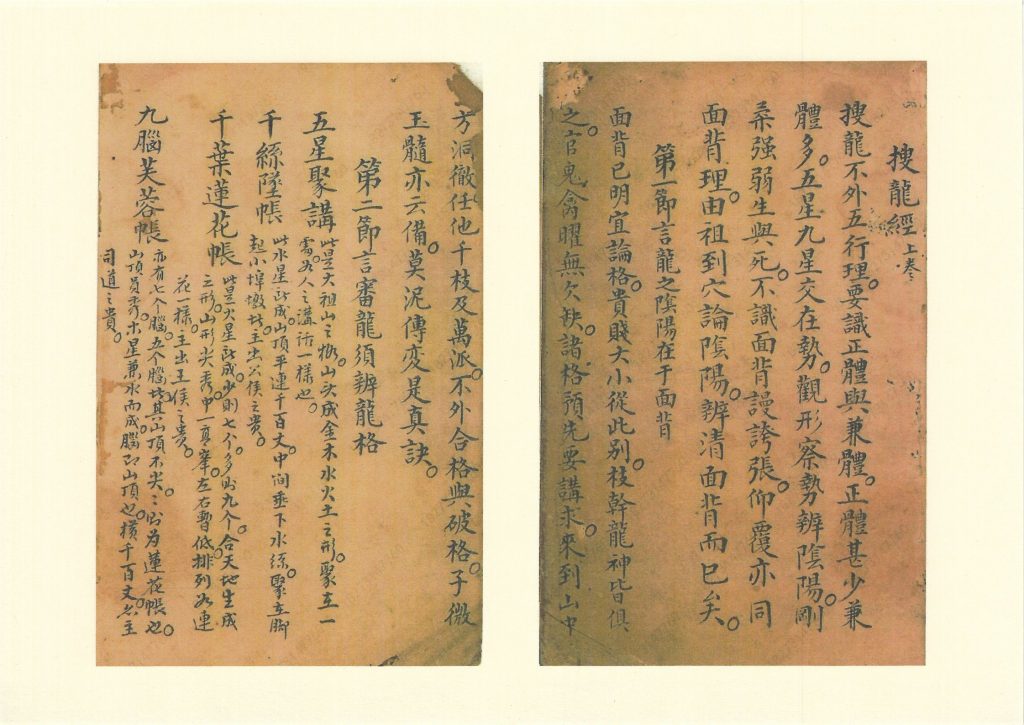 搜龍經上卷
搜龍不外五行理。要識正體與兼體。正體甚少兼
體多。五星九星交在勢。觀形察勢辨陰陽。剛
柔强弱生與死。不識面背謾誇張。仰覆亦同
面背理。由祖到穴論陰陽。辨清面背而已矣。
第一節言龍之陰陽在于面背
面背已明宜論格。貴賤大小從此别。枝幹龍神皆俱
之。官鬼禽曜無欠缺。諸格預先要講求。來到山中
方洞徹任他千枝及萬派。不外合格與破格。子微
玉髓亦云備。莫泥傳变是真訣。
第二節言審龍須辨龍格
五星聚講 此是大祖山之格。山头成金木水火土之形。聚在一
需为人之講話一樣也。
千絲墜帳 此水星所成山頂平連千百丈。中间垂下水絲。聚在脚
起小埠墩。主出公侯之貴。
千葉蓮花帳 此是火星所成少則七个。多則九个。合天地生成
之形。山形尖秀。中一頁峯。左右暫低。排列如連
花一樣。主出王侯之貴。
九腦芙蓉帳 亦有七个腦。五个腦。其山頂不尖。尖則为蓮花帳也。
山頂員秀。木星兼水而成。腦即山頂也。橫千百丈。主
司道之貴。